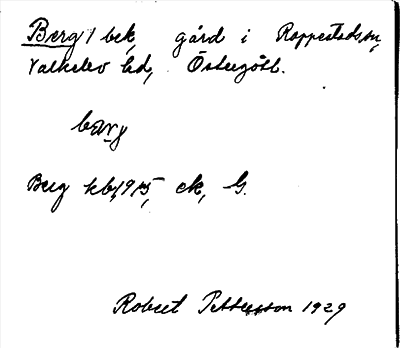 Berg / bek, gård i Rappestads sn,
Valkebo hd, Östergötl.
barg
Berg kb, 1915, ek, G.
Robert Pettersson 1929